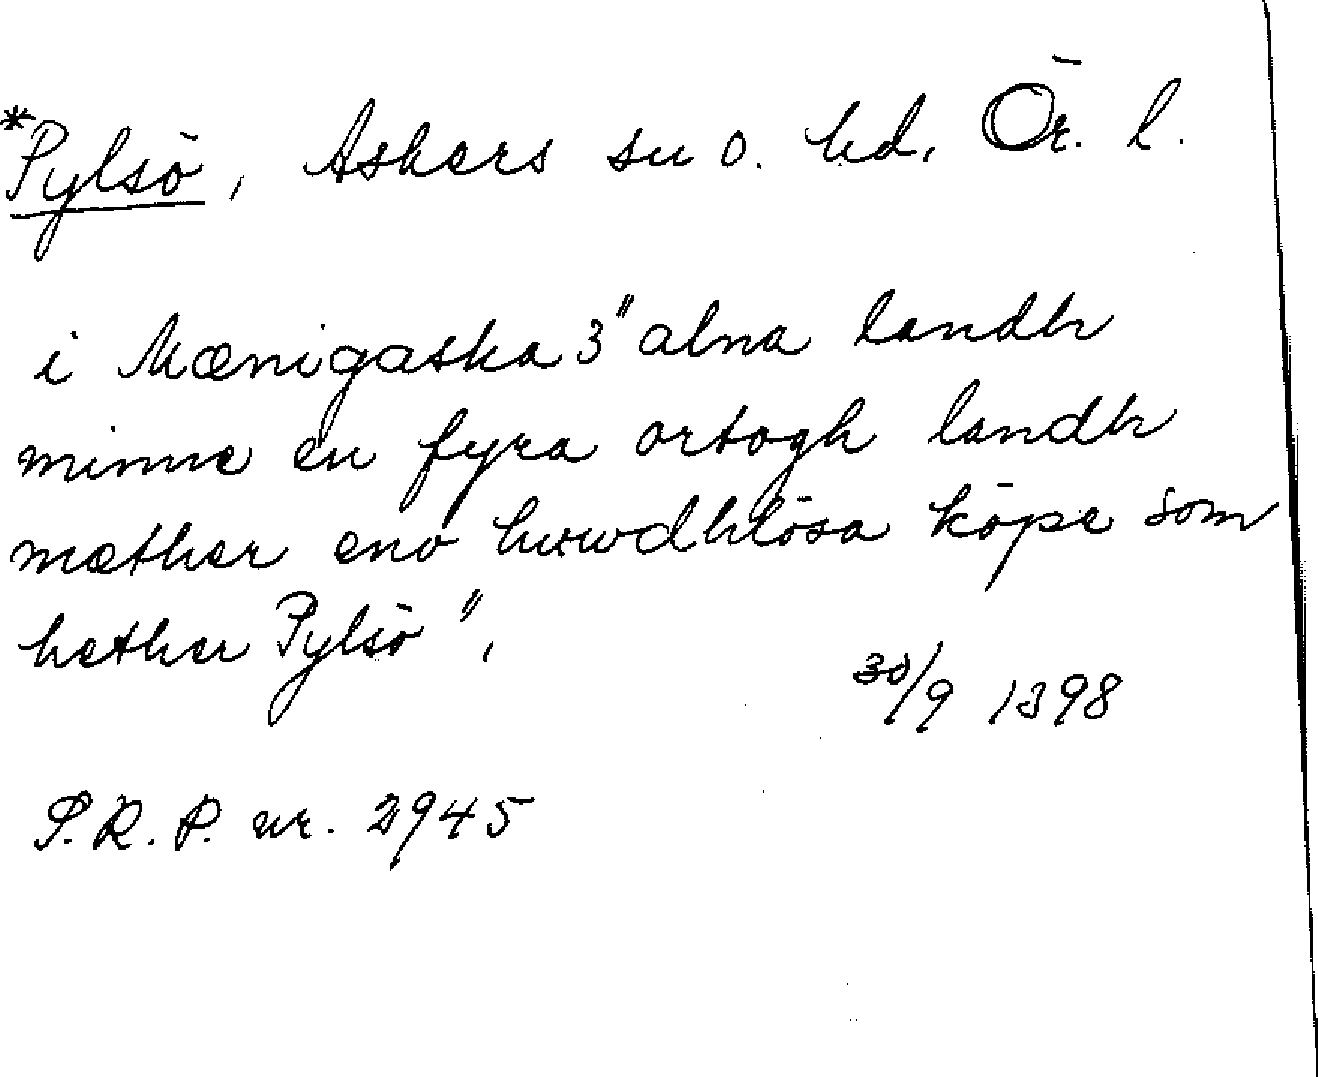 *Pylsö, Askers su o. hd, Ör. l.
i Mænigaska 3 "alna landh
minne en fyra ortogh landh
mæther eno huwdhlösa köpe som
hether Pylsö",
30/9 1398
S.R.P. nr. 2945